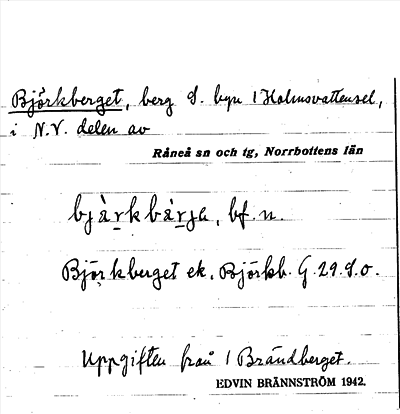 Björkberget, berg S. byn 1 Holmsvattensel,
i N.V. delen av
Råneå sn och tg, Norrbottens län
bjàrkbàrja, bf. n.
Björkberget ek. Björkb. G. 29. S. o.
Uppgiften från 1 Brändberget.
EDVIN BRÄNNSTRÖM 1942.